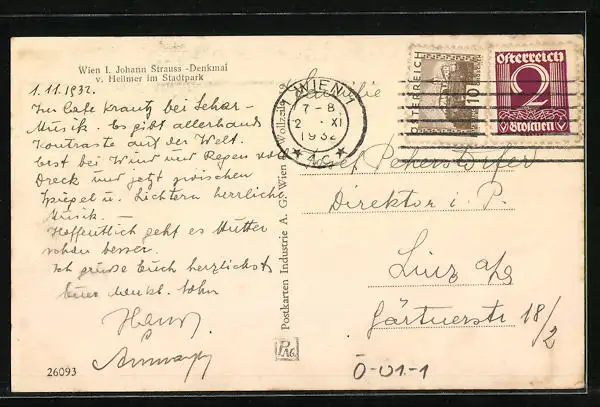 Wien I. Johann Strauss-Denkmal
v. Hellmer im Stadtpark
1.11.1932.
Im Cafe Krantz bei Lehar-
Musik. Es gibt allerhand
Kontraste auf der Welt.
Erst bei Wind und Regen voll
Dreck und jetzt zwischen
Spiegel u. Lichtern herrliche
Musik. —
Hoffentlich geht es Mutter
schon besser.
Ich grüsse Euch herzlichst
Euer dankb. Sohn
Hans.
26093
Postkarten Industrie A. G. Wien I. Wollzeile 9
PAG
WIEN 1
7-8
2. XI
1932
ÖSTERREICH
10
Österreich
2
Groschen
Familie
Josef Pekerstorfer
Direktor i. P.
Linz a/D
Gärtnerstr 18/2
Ö-U1-1